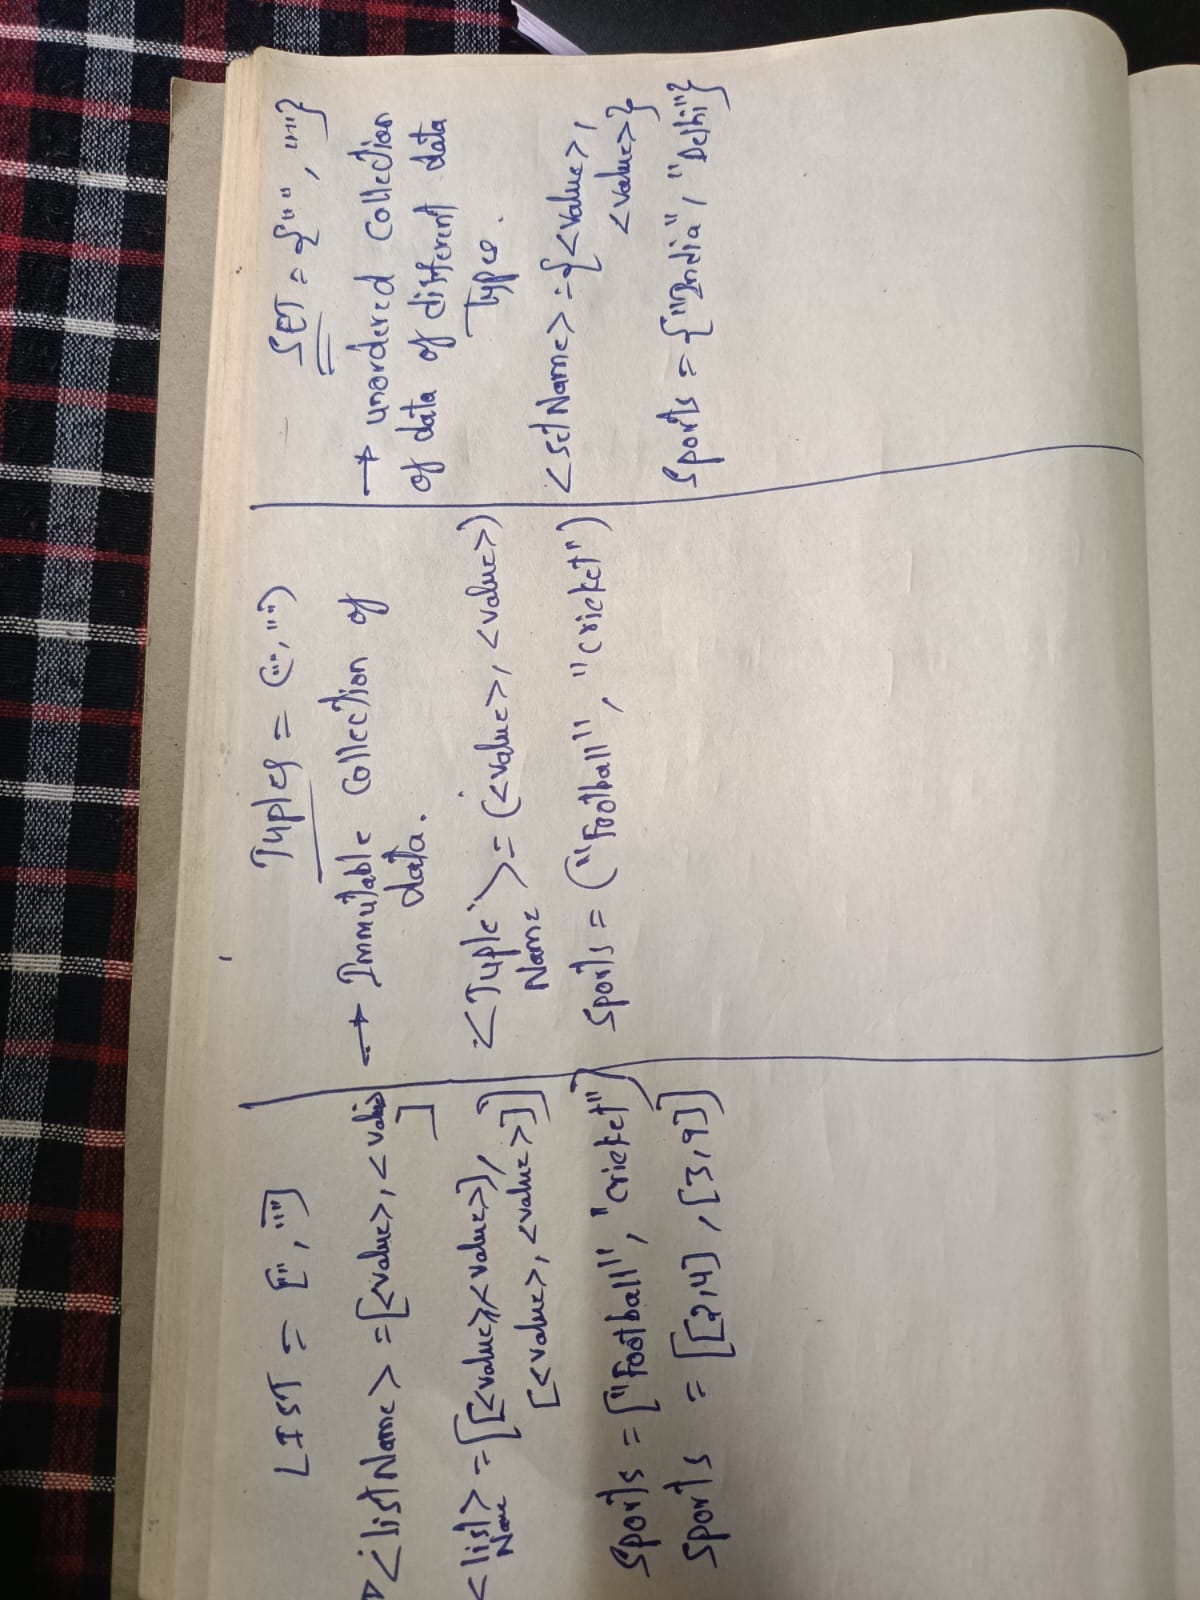 LIST = ["", ""]
<listName> = [<value>, <value>
]
<list> = [[<value>,<value>],
Name
[<value>, <value>]]
Sports = ["Football", "cricket"]
Sports = [[2,4], [3,9]]
Tuples = ("", "")
→ Immutable Collection of
data.
<Tuple> = (<value>, <value>)
Name
Sports = ("Football", "cricket")
SET = {"", ""}
→ unordered Collection
of data of different data
Types.
<setName> = {<value>,
<value>}
Sports = {"India", "Delhi"}